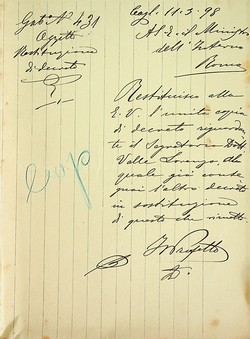 Gab.º Nº 431
Oggetto
Restituzione
di decreto
Cop
Cagl. 11-3-98
A S. E. il Ministro
dell'Interno
Roma
Restituisco alla
E. V. l'unita copia
di decreto riguardan
te il Segretario Dott.
Valle Lorenzo, che
quale già conse
guai l'altro decreto
in sostituzione
di questo che rimetto.
Il Prefetto